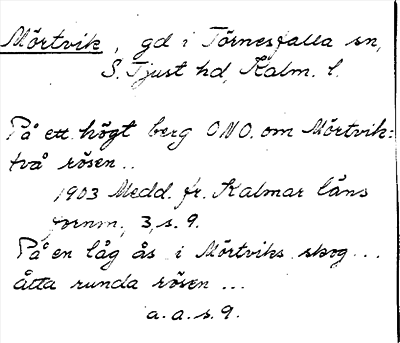 Mörtvik, gd i Törnesfalla sn,
S. Tjust hd, Kalm. l.
På ett högt berg ONO. om Mörtvik:
två rösen..
1903 Medd. fr. Kalmar läns
fornm., 3, s. 9.
På en låg ås i Mörtviks skog...
åtta runda rösen ...
a. a. s. 9.